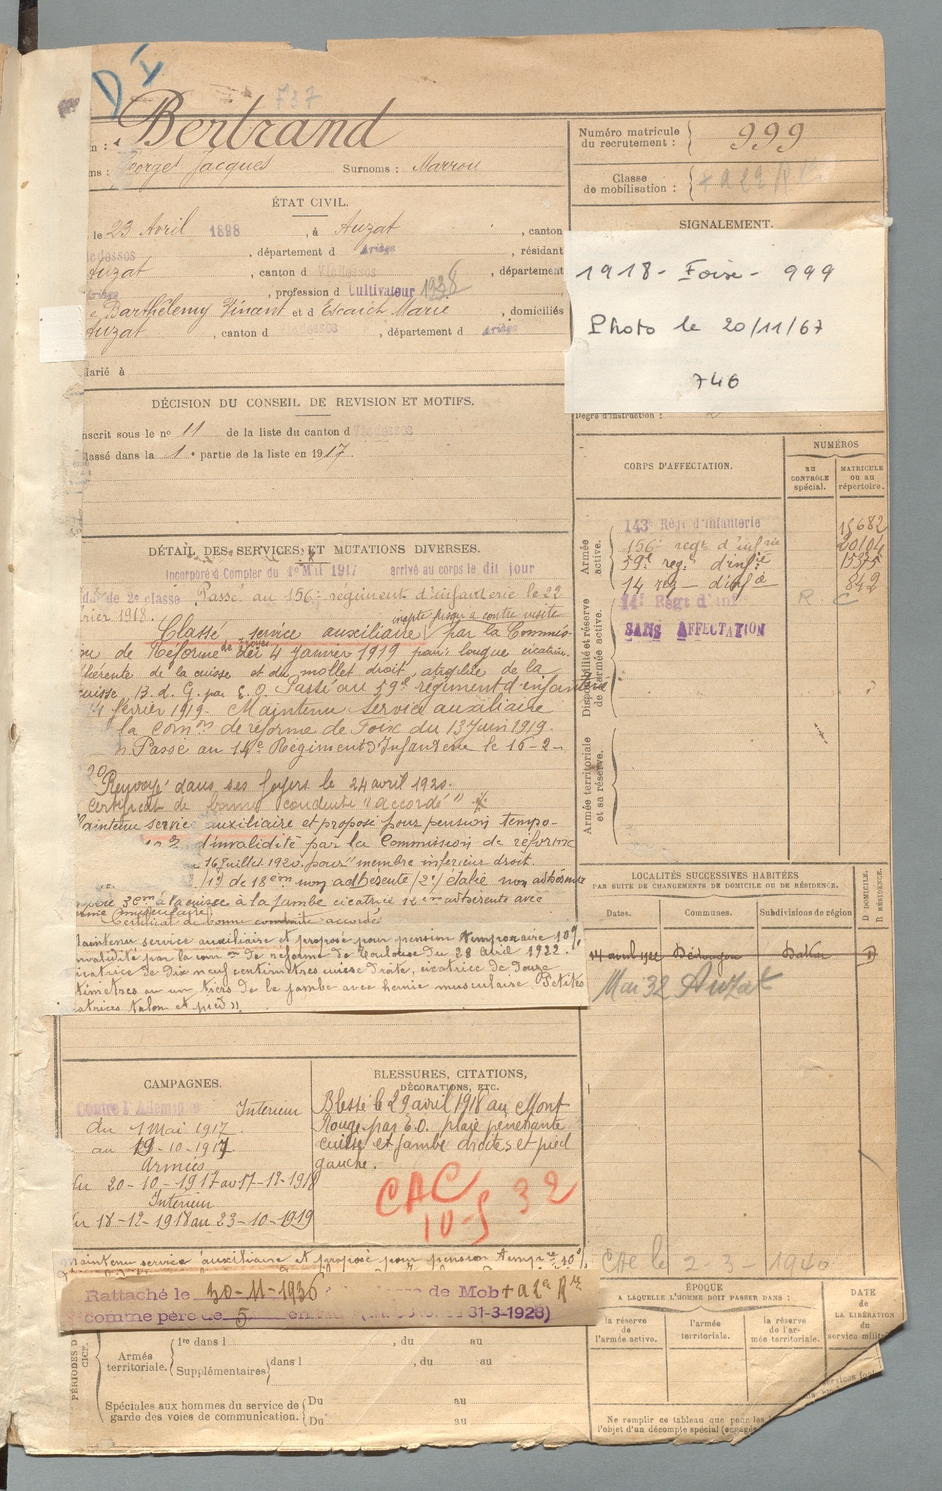 D I
737
Bertrand
n :
ms : Georges Jacques Surnoms : Marrou
Numéro matricule du recrutement : 999
Classe de mobilisation :
ÉTAT CIVIL.
le 23 Avril 1898, à Auzat, canton
Vicdessos, département d Ariège, résidant
Auzat, canton d Vicdessos, département
Ariège, profession d Cultivateur 1938
e Barthélemy Vincent et d Escaich Marie, domiciliés
Auzat, canton d Vicdessos, département d Ariège
arié à
SIGNALEMENT.
1918 - Foix - 999
Photo le 20/11/67
746
Degré d'instruction :
DÉCISION DU CONSEIL DE REVISION ET MOTIFS.
nscrit sous le no 11 de la liste du canton d Vicdessos
lassé dans la 1e partie de la liste en 1917.
DÉTAIL DES SERVICES ET MUTATIONS DIVERSES.
Incorporé à Compter du 1er Mai 1917 arrivé au corps le dit jour
de 2e classe Passé au 156e régiment d'infanterie le 22
vrier 1918. inapte jusqu'à contre visite
Classé service auxiliaire par la Commis-
on de Réforme de Troyes du 4 janvier 1919 pour longue cicatrice
hérente de la cuisse et du mollet droit atrophie de la
cuisse. B. d. G. par E. O. Passé au 59e régiment d'infanterie
4 février 1919. Maintenu Service auxiliaire
la comon de réforme de Foix du 13 Juin 1919.
Passé au 14e Régiment d'Infanterie le 16-2-
20
Renvoyé dans ses foyers le 24 avril 1920.
Certificat de bonne conduite "accordé"
aintenu service auxiliaire et proposé pour pension tempo-
d'invalidité par la Commission de réforme
16 juillet 1920 pour "membre inférieur droit.
(1°) de 18cm non adhérente (2°) étalée non adhérente
3cm à la cuisse à la jambe cicatrice 12cm adhérente avec
hernie musculaire
Certificat de bonne conduite accordé
aintenu service auxiliaire et proposé pour pension temporaire 10%
nvalidité par la comon de réforme de Toulouse du 28 Avril 1922.
icatrice de Dix neuf centimètres cuisse droite, cicatrice de douze
timètres au un tiers de la jambe avec hernie musculaire Petites
atrices talon et pied ".
CORPS D'AFFECTATION.
NUMÉROS
AU CONTRÔLE spécial.
MATRICULE OU AU répertoire.
Armée active.
143e Régt d'Infanterie 15682
156e regt d'infrie 20104
59e reg. d'infie 15375
14 reg - d'infie 842
Disponibilité et réserve de l'armée active.
14e Régt d'Inf R. C
SANS AFFECTATION
Armée territoriale et sa réserve.
LOCALITÉS SUCCESSIVES HABITÉES
PAR SUITE DE CHANGEMENTS DE DOMICILE OU DE RÉSIDENCE.
Dates. Communes. Subdivisions de région D. DOMICILE. R. RÉSIDENCE.
avril 1922 D
Mai 32 Auzat
CAMPAGNES.
Contre l'Allemagne Intérieur
du 1 Mai 1917.
au 19-10-1917
Armées
du 20-10-1917 au 17-12-1918
Intérieur
du 18-12-1918 au 23-10-1919
BLESSURES, CITATIONS,
DÉCORATIONS, ETC.
Blessé le 29 avril 1918 au Mont
Rouge par E.O. plaie pénétrante
cuisse et jambe droites et pied
gauche.
CAC
10-5 32
aintenu service auxiliaire et proposé pour pension tempre 10%
Rattaché le 30-11-1936 de Mob
comme père de 5 en 31-3-1928)
CAC le 2-3-1940
PÉRIODES D
Armée territoriale.
1re dans l , du au
Supplémentaires dans l , du au
Spéciales aux hommes du service de garde des voies de communication.
Du au
Du au
ÉPOQUE
A LAQUELLE L'HOMME DOIT PASSER DANS :
la réserve de l'armée active.
l'armée territoriale.
la réserve de l'armée territoriale.
DATE de LA LIBÉRATION du service milit
Ne remplir ce tableau que pour les
l'objet d'un décompte spécial (engagés